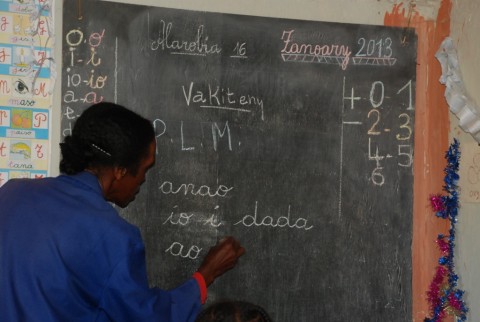 Alarobia 16 Janoary 2013
o - o
i - i
io - io
a - a
e
d
Vakiteny
P. L. M.
anao
io i dada
ao
+ 0 - 1
- 2 - 3
4 - 5
6
maso
tana